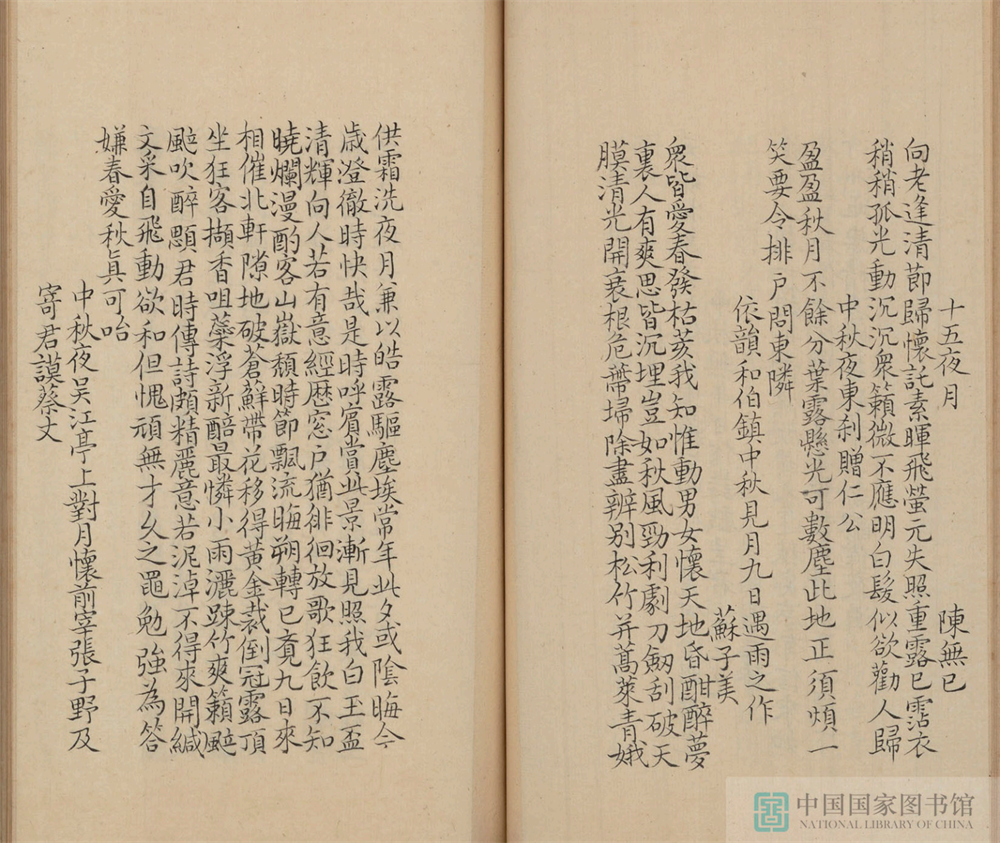 十五夜月
陳無已
向老逢清節歸懷託素暉飛螢元失照重露已霑衣
稍稍孤光動沉沉衆籟微不應明白髮似欲勸人歸
中秋夜東刹贈仁公
盈盈秋月不餘分葉露懸光可數塵此地正須煩一
笑要令排戶問東隣
依韻和伯鎮中秋見月九日遇雨之作
蘇子美
衆皆愛春發枯荄我知惟動男女懷天地昏酣醉夢
裏人有爽思皆沉埋豈如秋風勁利劇刀劒刮破天
膜清光開衰根危蔕埽除盡辨别松竹并蒿萊青娥
供霜洗夜月兼以皓露驅塵埃常年此夕或陰晦今
歳澄徹時快哉是時呼賓賞此景漸見照我白玉盃
清輝向人若有意經歴窓戶猶徘徊放歌狂飲不知
曉爛漫酌客山嶽頹時節飄流晦朔轉已覺九日來
相催北軒隙地破蒼蘚帶花移得黃金裁倒冠露頂
坐狂客擷香咀蘂浮新醅最憐小雨灑踈竹爽籟颼
颼吹醉顋君時傳詩頗精麗意若泥淖不得來開緘
文采自飛動欲和但愧頑無才久之黽勉強為答
嫌春愛秋眞可咍
中秋夜吴江亭上對月懷前宰張子野及
寄君謨蔡丈
中国国家图书馆
NATIONAL LIBRARY OF CHINA